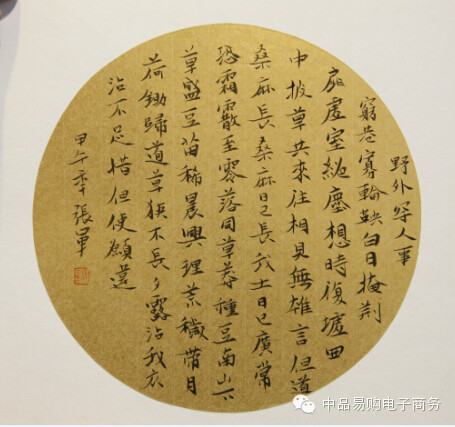 野外罕人事
窮巷寡輪鞅白日掩荆
扉虛室絶塵想時復墟曲
中披草共來往相見無雜言但道
桑麻長桑麻日已長我土日已廣常
恐霜霰至零落同草莽種豆南山下
草盛豆苗稀晨興理荒穢帶月
荷鋤歸道草狹不長夕露沾我衣
沾不足惜但使願違
甲午年張
中品易购电子商务